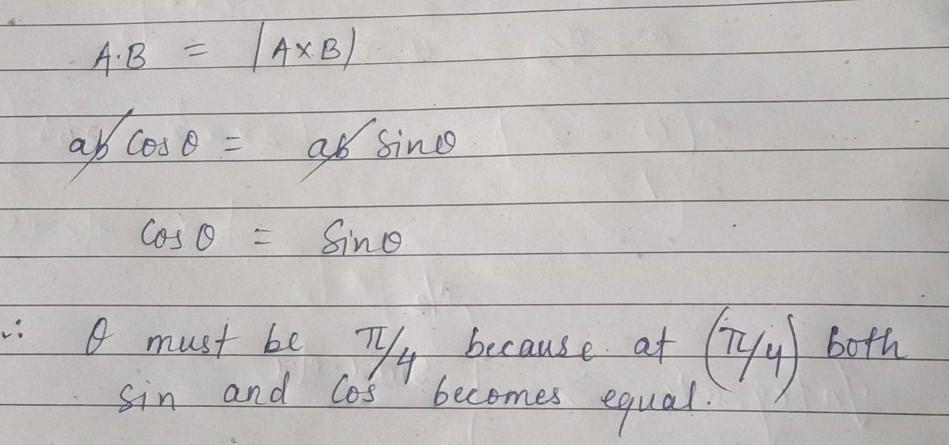 A·B = |A×B|
ab cos θ = ab sin θ
cos θ = sin θ
∴ θ must be π/4 because at (π/4) both
sin and cos becomes equal.